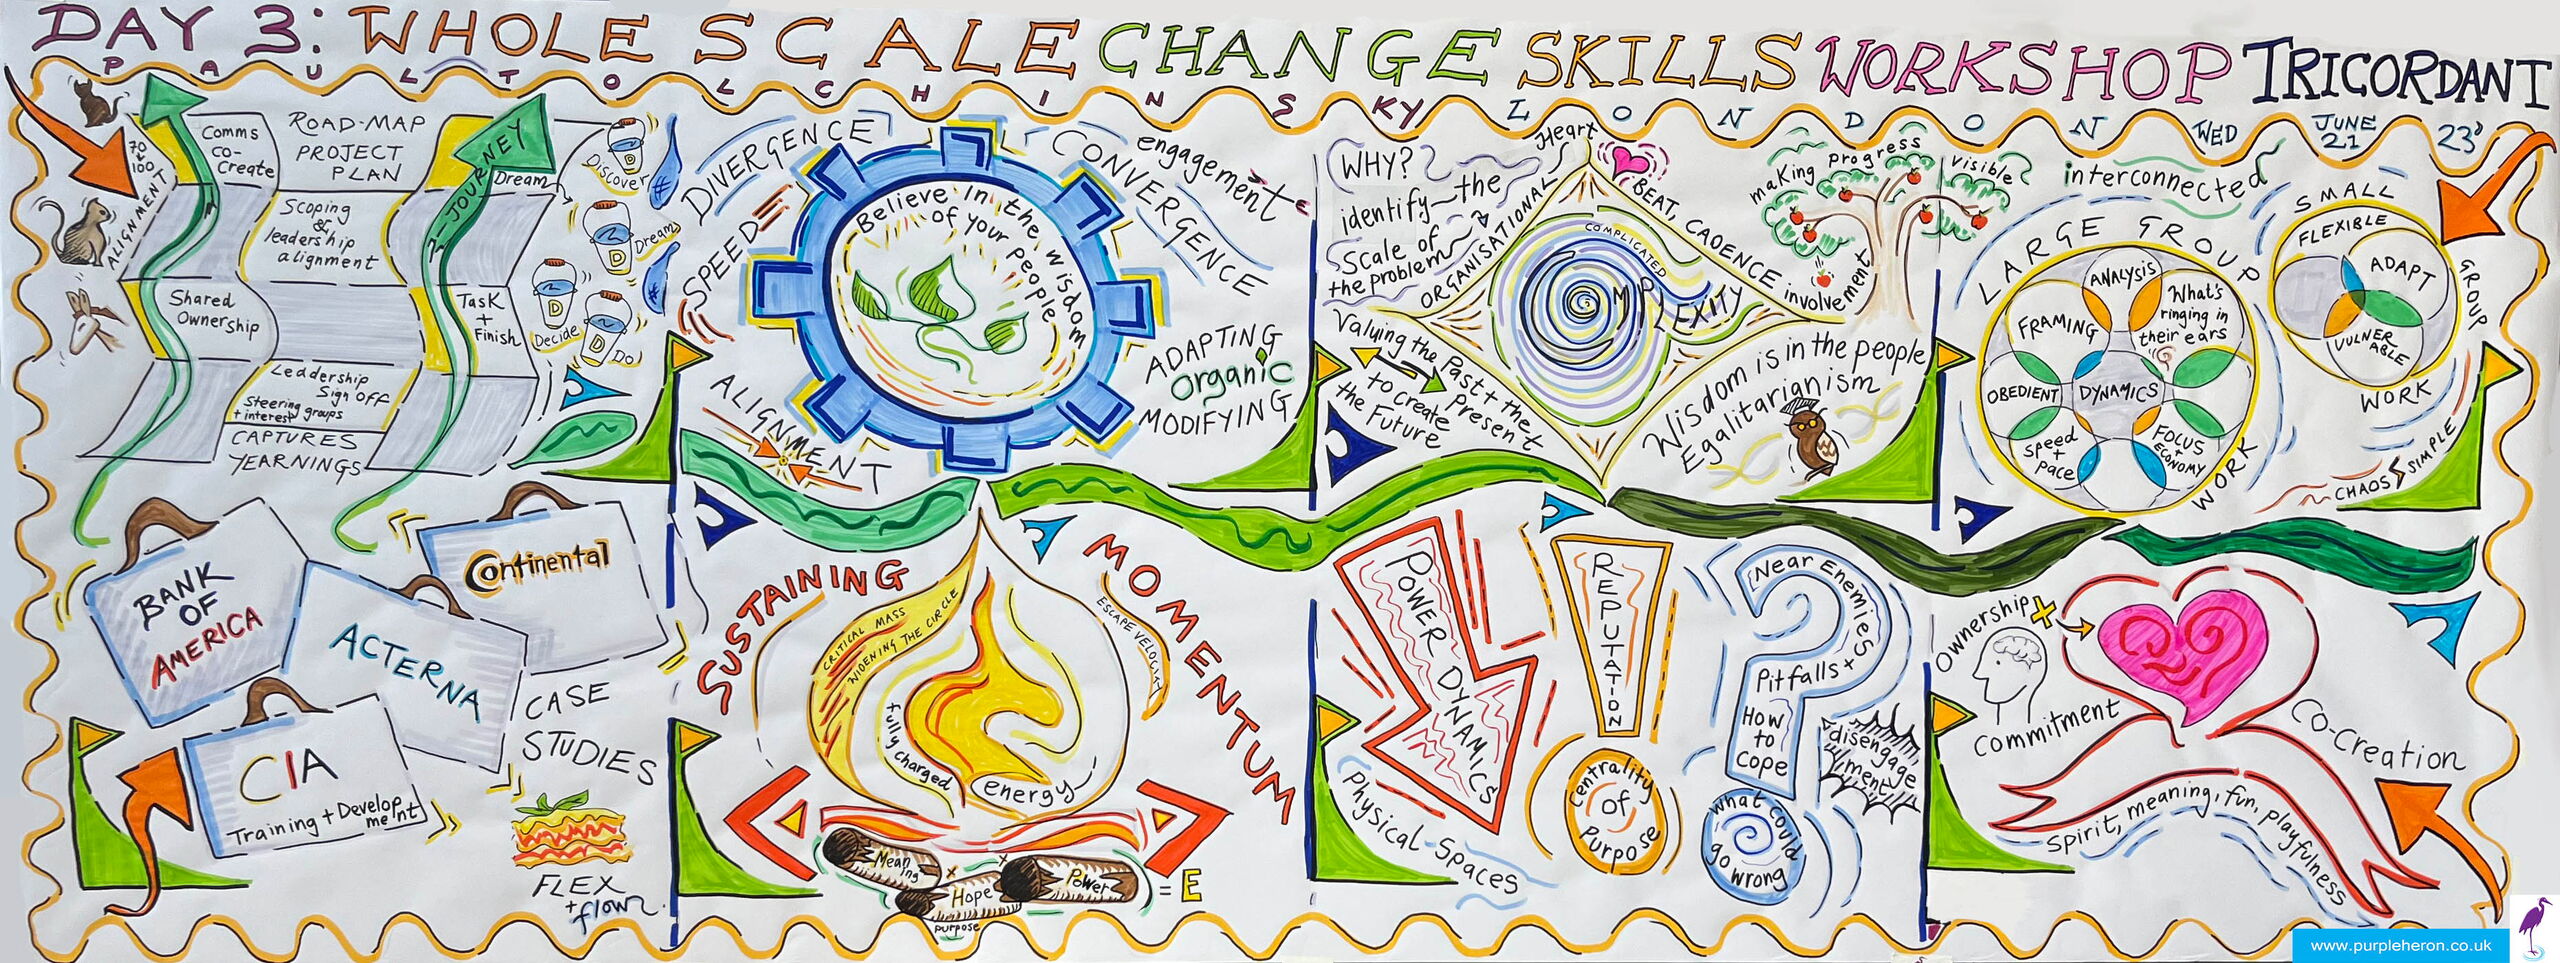 DAY 3: WHOLE SCALE CHANGE SKILLS WORKSHOP TRICORDANT
PAUL TOLCHINSKY LONDON WED JUNE 21 23'
70 100
ALIGNMENT
Comms
co-
Create
ROAD-MAP
PROJECT
PLAN
Scoping
&
leadership
alignment
Shared
Ownership
Leadership
Sign off
Steering groups
+ interest
CAPTURES
YEARNINGS
JOURNEY
Task
+
Finish
Dream
D
Discover
D
Dream
D
Decide
D
Do
BANK
OF
AMERICA
ACTERNA
Continental
CIA
Training + Develop
ment
CASE
STUDIES
FLEX
+
flow
DIVERGENCE
SPEED
ALIGNMENT
Believe in the wisdom
of your people
CONVERGENCE
engagement
ADAPTING
organic
MODIFYING
SUSTAINING
MOMENTUM
CRITICAL MASS
WIDENING THE CIRCLE
ESCAPE VELOCITY
fully charged
energy
Mean
ing
x
Hope
x
Power
= E
purpose
WHY?
identify the
Scale of
the problem
ORGANISATIONAL
Heart
BEAT, CADENCE
COMPLICATED
COMPLEXITY
making progress visible
involvement
Valuing the Past + the
Present
to create
the Future
Wisdom is in the people
Egalitarianism
POWER DYNAMICS
Physical Spaces
REPUTATION
Centrality
of
Purpose
Near Enemies
Pitfalls +
How
to
Cope
what could
go wrong
disengage
ment
interconnected
LARGE GROUP
WORK
ANALYSIS
What's
ringing in
their ears
FRAMING
OBEDIENT
DYNAMICS
Speed
+
pace
FOCUS
+
ECONOMY
SMALL
GROUP
WORK
FLEXIBLE
ADAPT
VULNER
ABLE
CHAOS
SIMPLE
Ownership
+
Commitment
Co-Creation
Spirit, meaning, fun, playfulness
www.purpleheron.co.uk